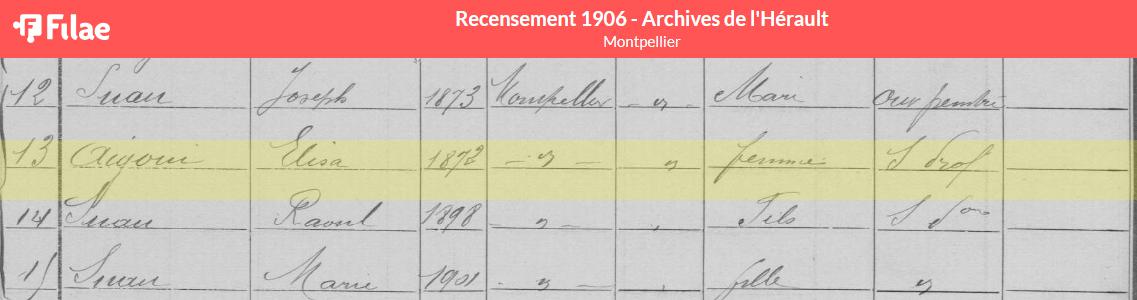 Filae
Recensement 1906 - Archives de l'Hérault
Montpellier
12 Suau Joseph 1873 Montpellier - " - Mari ouv peintre
13 Aigoui Elisa 1872 - " - " femme S prof
14 Suau Raoul 1898 " - " Fils S don
15 Suau Marie 1901 " - fille "